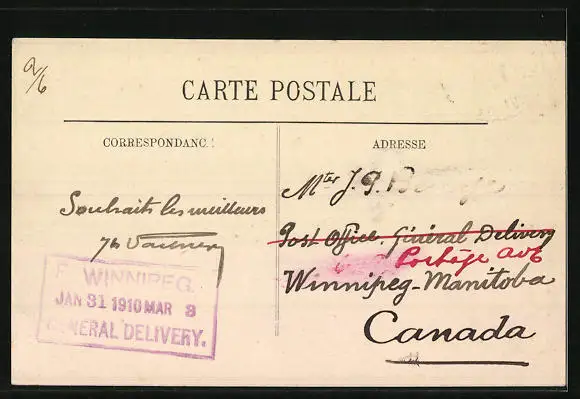 2/6
CARTE POSTALE
CORRESPONDANC
ADRESSE
Mter J. P.
Souhaits les meilleurs
Post Office. Général Delivery
Portage Ave
Winnipeg-Manitoba
Canada
WINNIPEG.
JAN 31 1910 MAR 3
GENERAL DELIVERY.